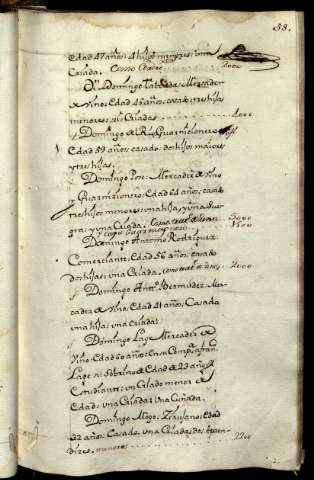 58.
Edad 47 años, 4 hijos menores, una
Criada. 2000
Dn. Domingo Taboada, Mercader
de vino; Edad 46 años, casado, tres hijos
menores, dos Criadas 4000
Domingo del Rio, Guarnicionero
Edad 59 años; casado, dos hijos maiores
y tres hijas.
Domingo Pose, Mercader de vino
y Guarnicionero, Edad 64 años, casado
tres hijos menores, una hija, y una Sue
gra, y una Criada, 3000
1500
Domingo Antonio Rodriguez
Comerciante, Edad 56 años, casado
dos hijas, una Criada, 2000
Domingo Antto. Bermudez, Mer-
cader de vino, Edad 41 años, Casado
una hija, una Criada.
Domingo Lage, Mercader de
vino, Edad 60 años, en su Compañia
Lage, su Sobrino de Edad de 23 años
Estudiante, un Criado menor de
Edad, una Criada, y una Cuñada.
Domingo Mogo, Zirujano, Edad
22 años, Casado, una Criada, dos Apren-
dizes, menores 2200